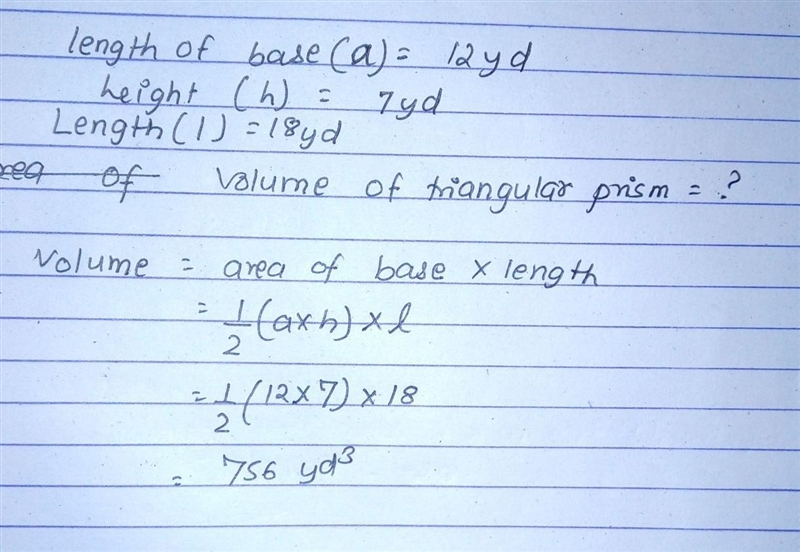 length of base (a) = 12yd
height (h) = 7yd
Length (l) = 18yd
rea of Volume of triangular prism = ?
Volume = area of base × length
= 1/2 (a×h) × l
= 1/2 (12×7) × 18
= 756 yd³